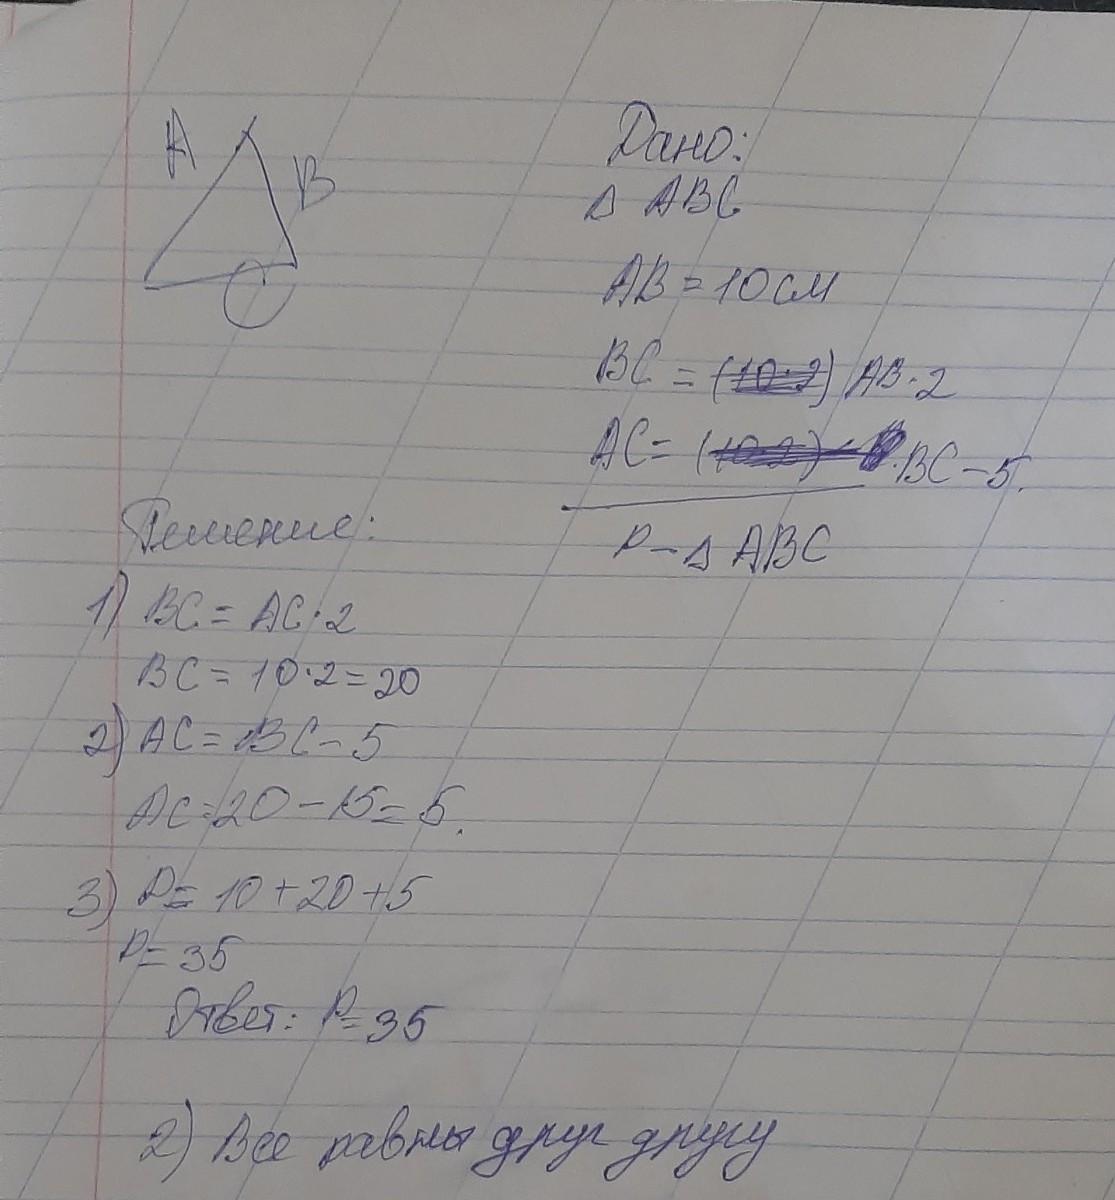 A
B
C
Дано:
Δ ABC
AB = 10 см
BC = (10·2) AB·2
AC = (10·2) - BC - 5.
P - Δ ABC
Решение:
1) BC = AC·2
BC = 10·2 = 20
2) AC = BC - 5
AC = 20 - 15 = 5.
3) P = 10 + 20 + 5
P = 35
Ответ: P = 35
2) Все равны друг другу